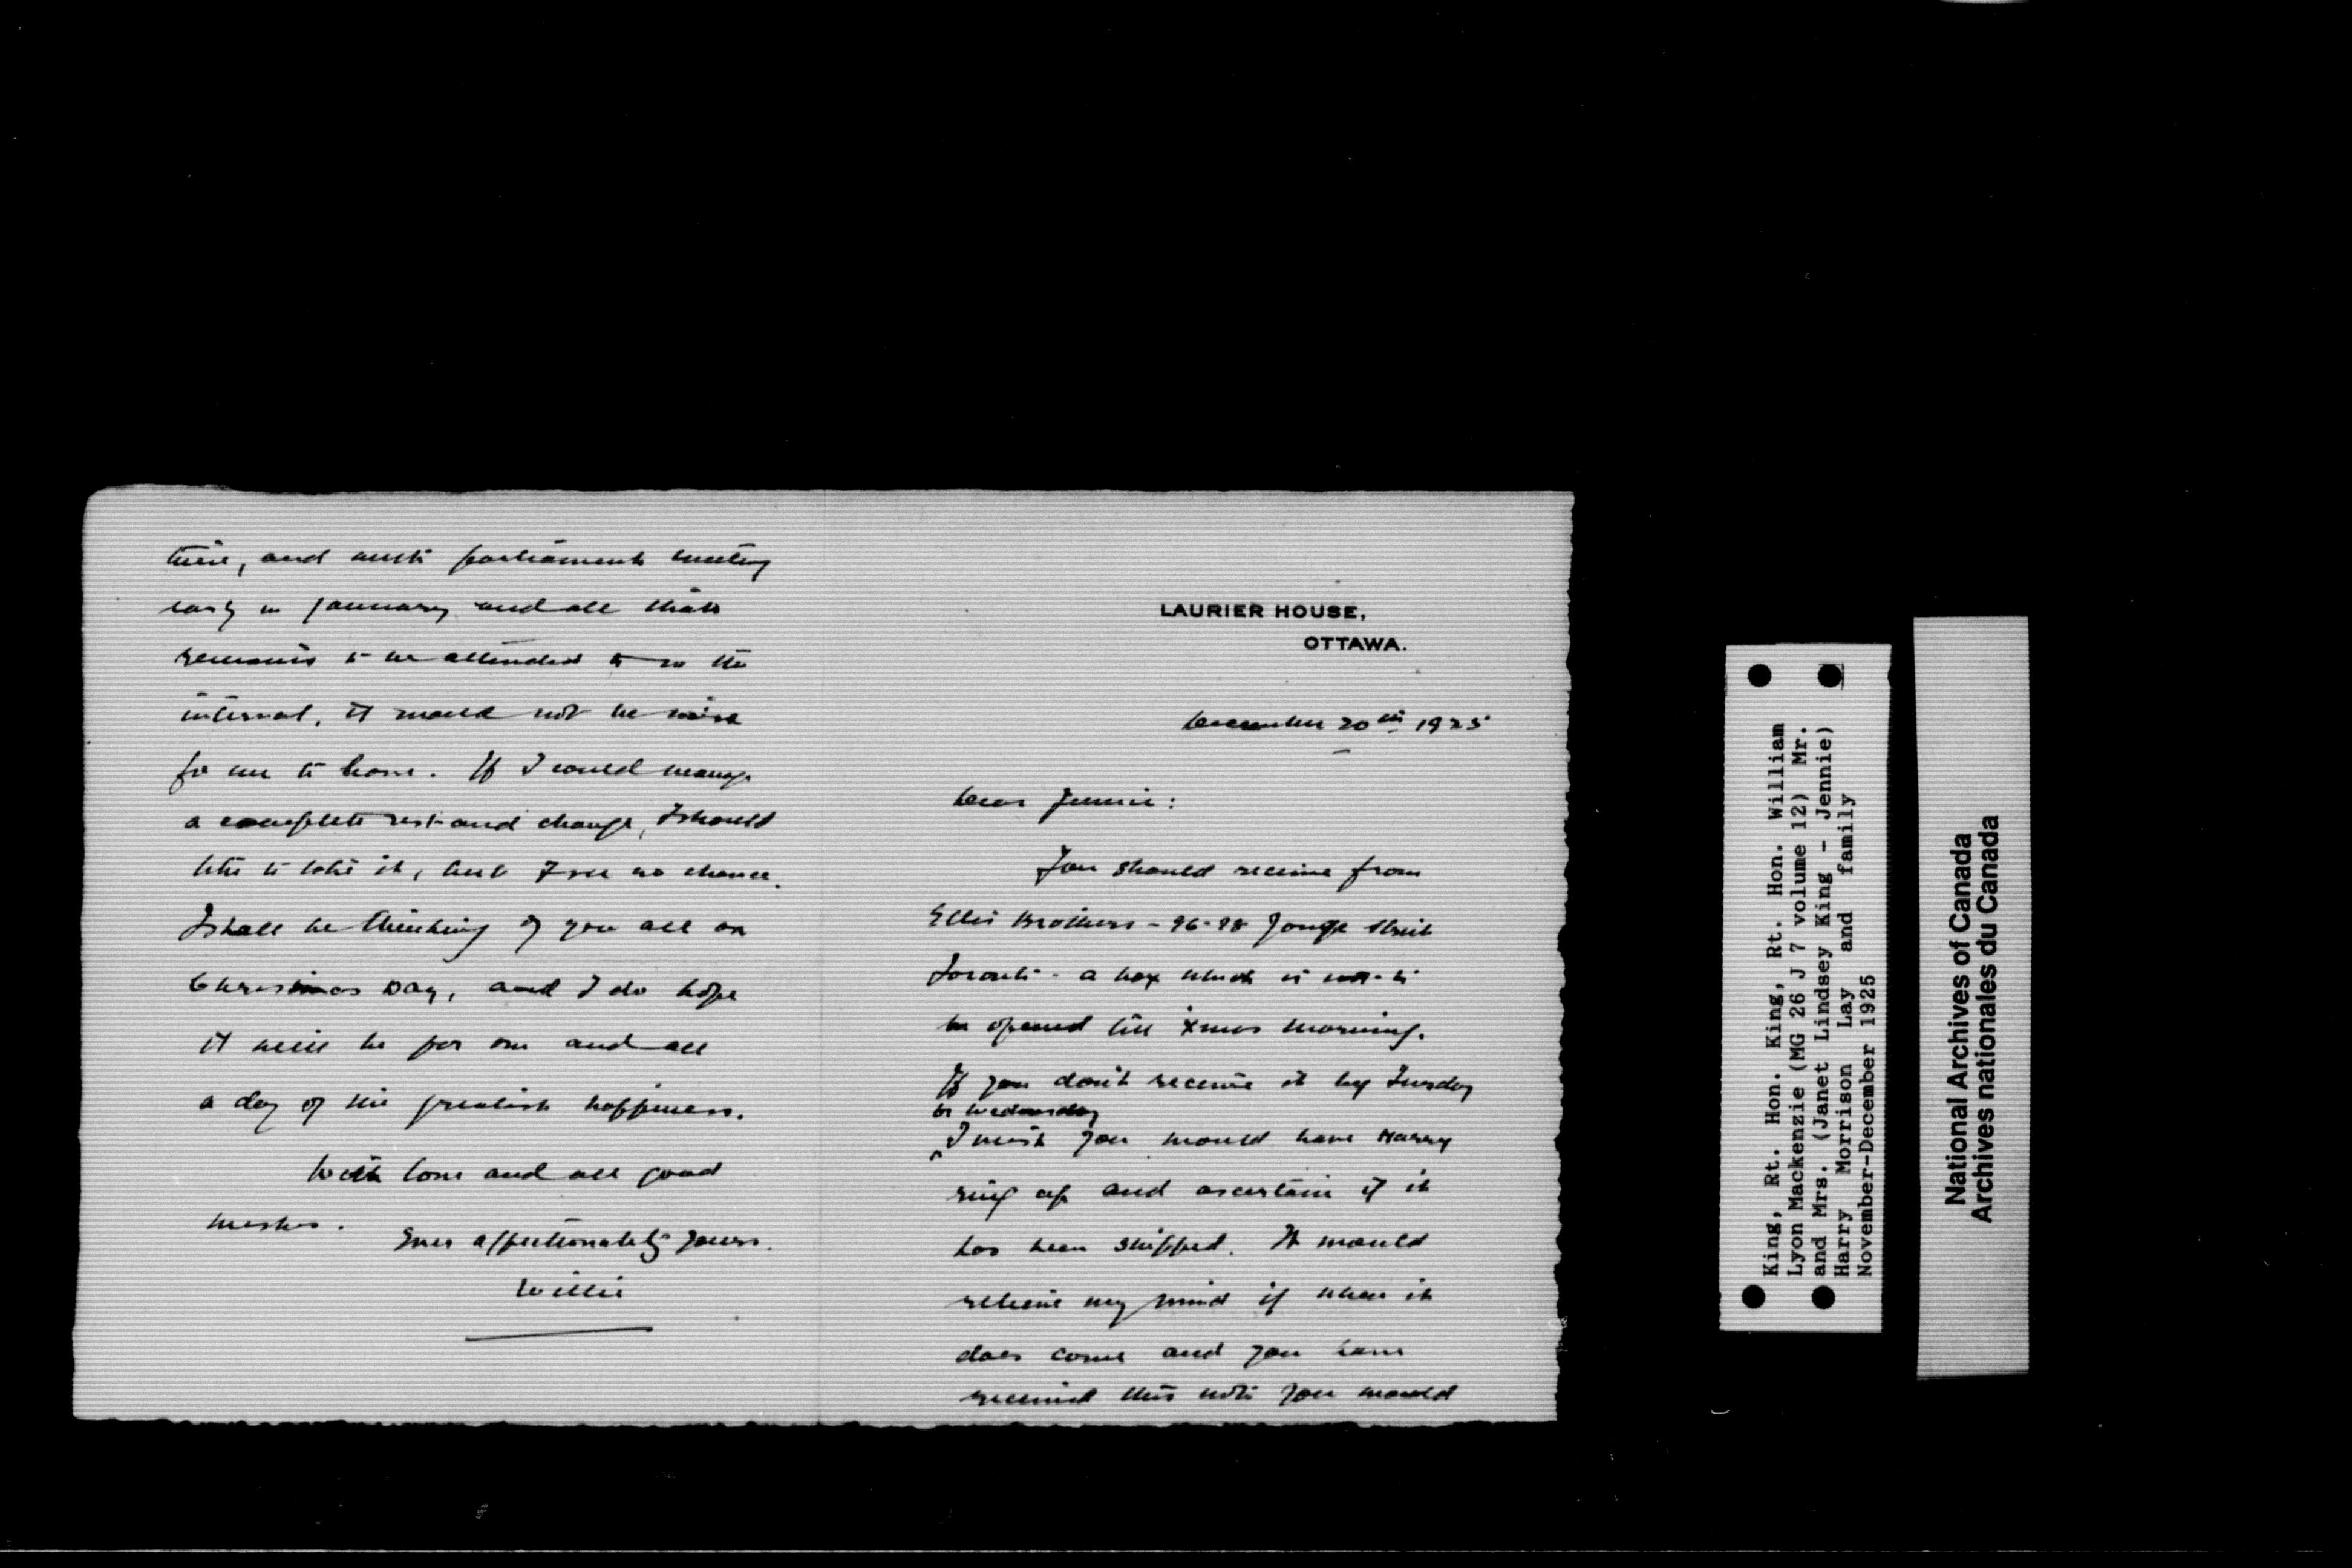 LAURIER HOUSE,
OTTAWA.
December 20th 1925
Dear Jennie:
You should receive from
Ellis Brothers - 96-98 Yonge Street
Toronto - a box which is not to
be opened till Xmas morning.
If you don't receive it by Tuesday
or Wednesday
I wish you would have Harry
ring up and ascertain if it
has been shipped. It would
relieve my mind if when it
does come and you have
received this note you would
there, and with parliament meeting
early in January and all that
remains to be attended to in the
interval, it would not be wise
for me to leave. If I could manage
a complete rest and change, I should
like to take it, but I see no chance.
I shall be thinking of you all on
Christmas Day, and I do hope
it will be for one and all
a day of the greatest happiness.
With love and all good
wishes.
Ever affectionately yours.
Willie
King, Rt. Hon. King, Rt. Hon. William
Lyon Mackenzie (MG 26 J 7 volume 12) Mr.
and Mrs. (Janet Lindsey King - Jennie)
Harry Morrison Lay and family
November-December 1925
National Archives of Canada
Archives nationales du Canada